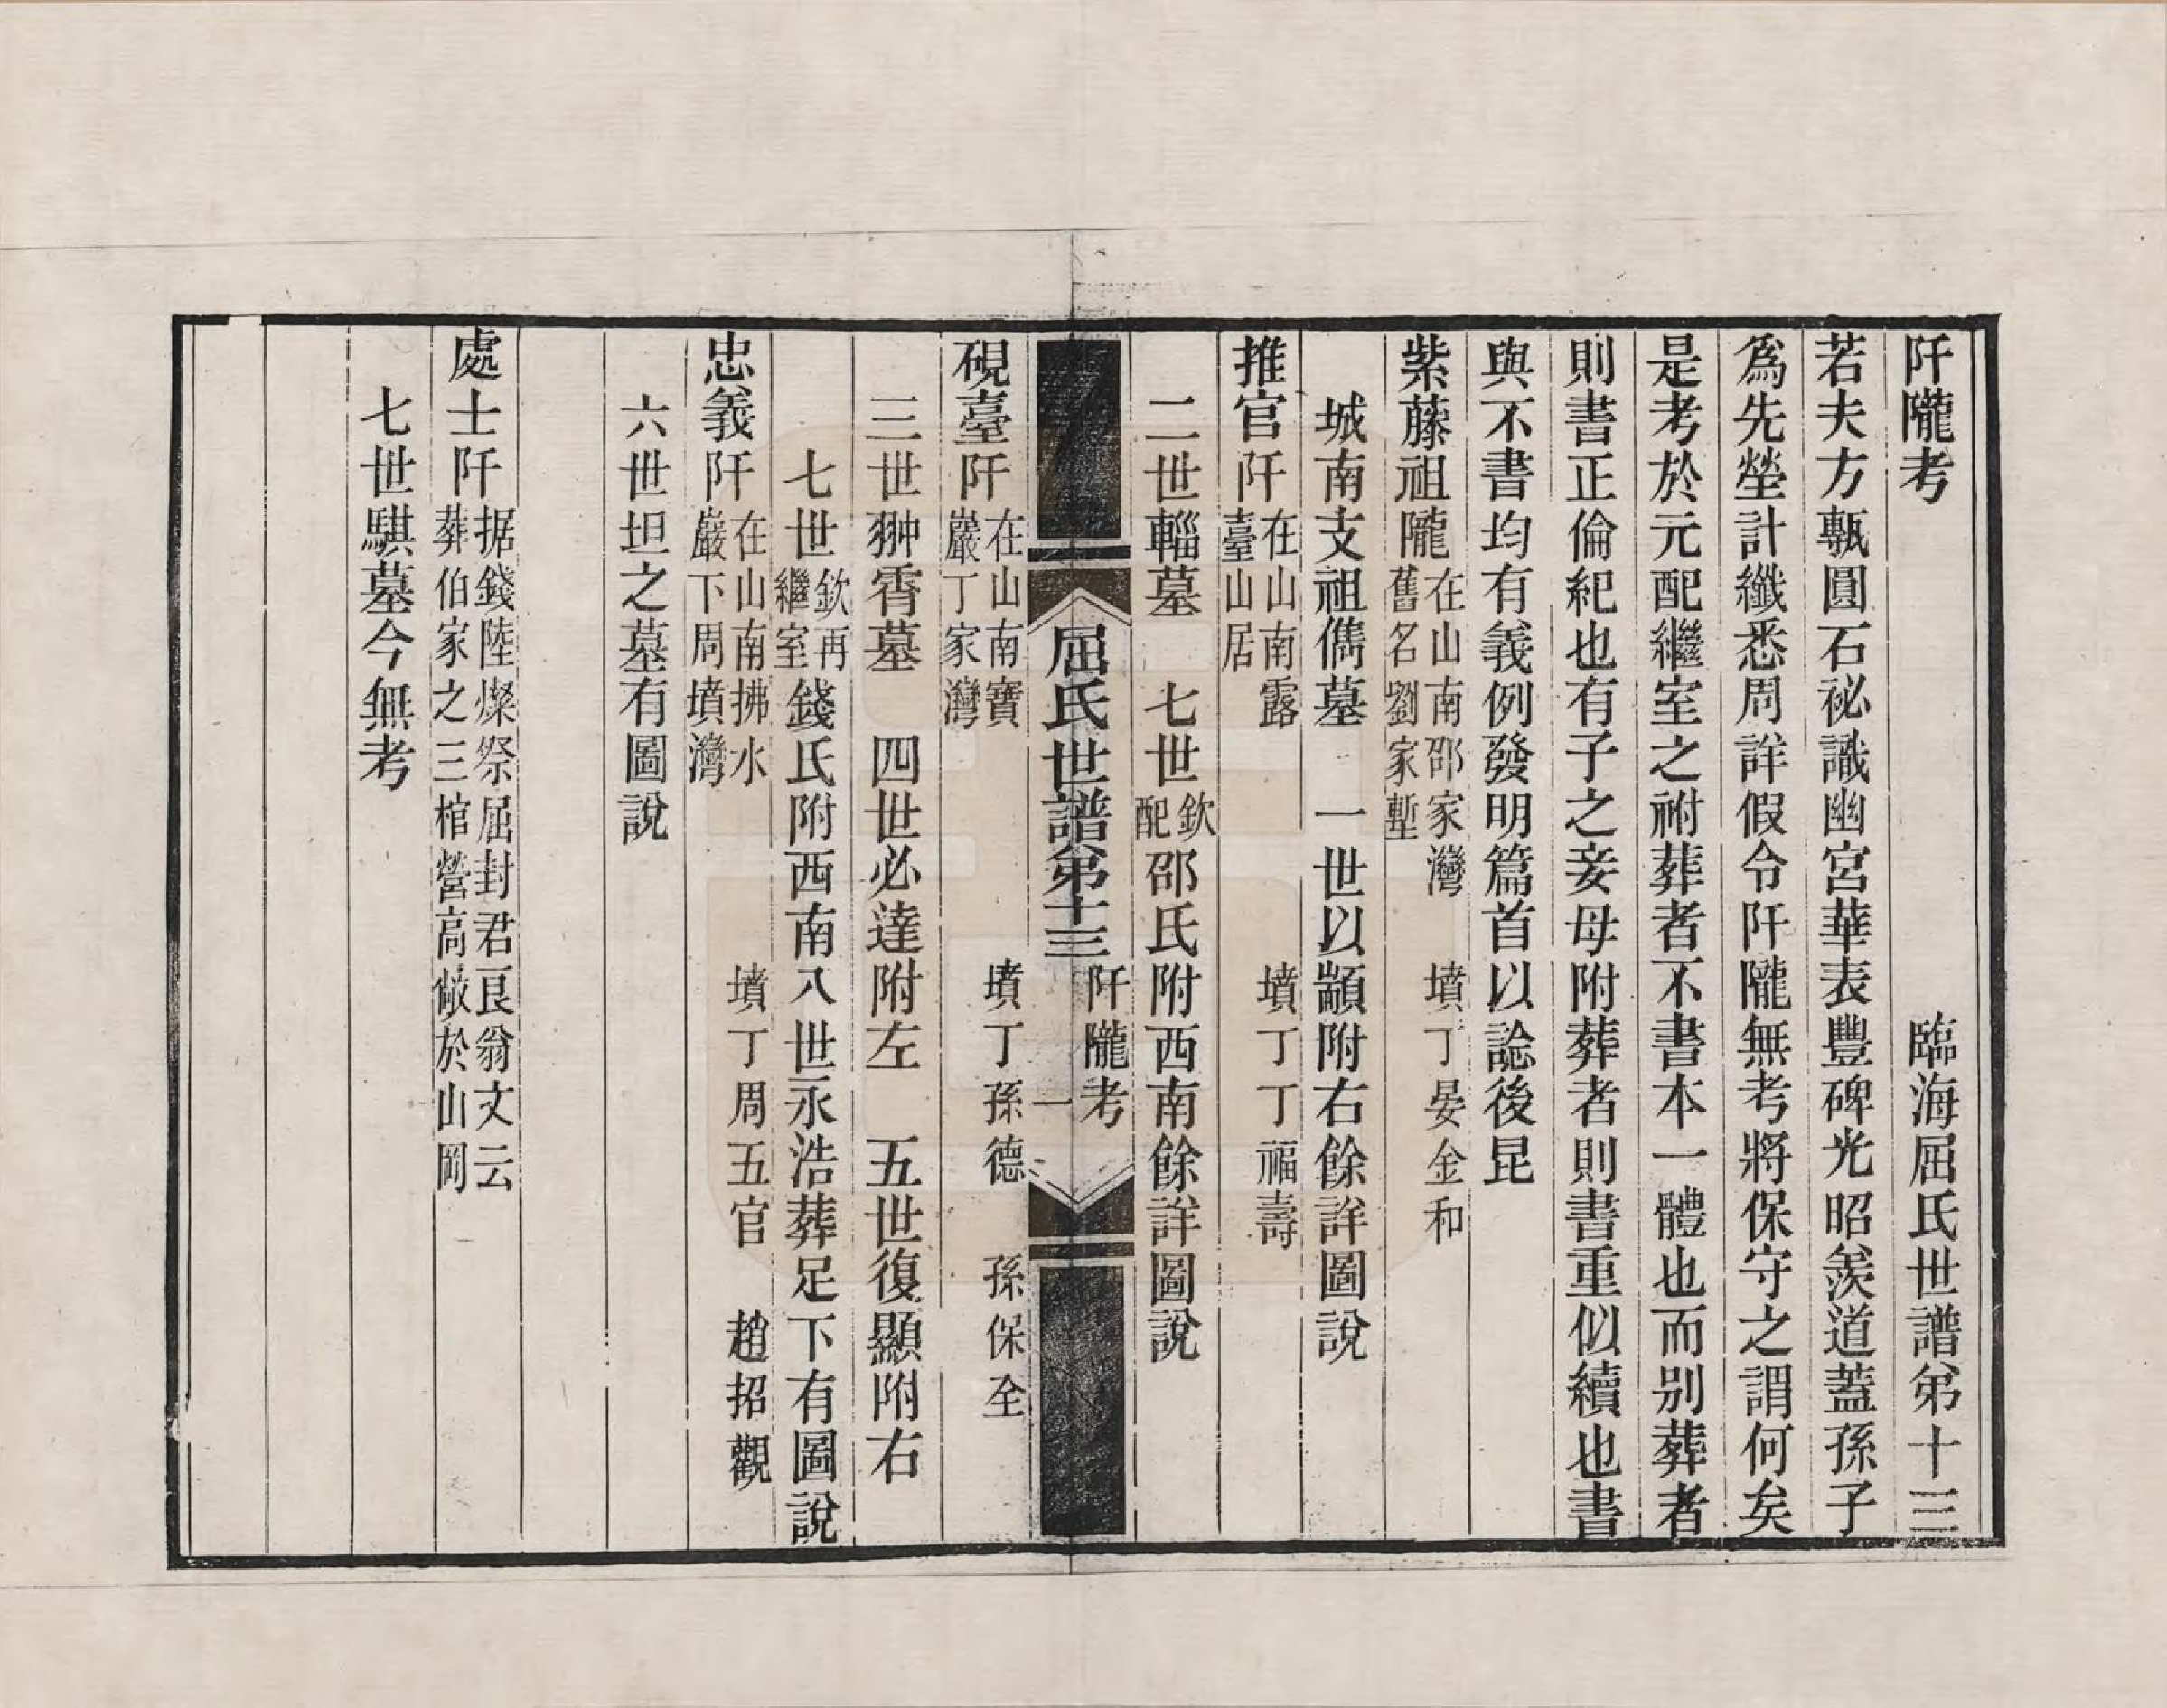 阡隴考　臨海屈氏世譜弟十三
若夫方甎圓石祕識幽宮華表豐碑光昭羨道蓋孫子
爲先塋計纖悉周詳假令阡隴無考將保守之謂何矣
是考於元配繼室之祔葬者不書本一體也而別葬者
則書正倫紀也有子之妾母附葬者則書重似續也書
與不書均有義例發明篇首以諗後昆
紫藤祖隴在山南邵家灣舊名劉家塹　墳丁晏金和
城南支祖儁墓　一世以顓附右餘詳圖說
推官阡在山南露臺山居　墳丁丁福壽
二世輜墓　七世欽配邵氏附西南餘詳圖說
屈氏世譜弟十三　阡隴考　一
硯臺阡在山南寶巖丁家灣　墳丁孫德　孫保全
三世翀霄墓　四世必達附左　五世復顯附右
七世欽再繼室錢氏附西南八世永浩葬足下有圖說
忠義阡在山南拂水巖下周墳灣　墳丁周五官　趙招觀
六世坦之墓有圖說
處士阡据錢陸燦祭屈封君艮翁文云葬伯家之三棺營高敞於山岡
七世騏墓今無考